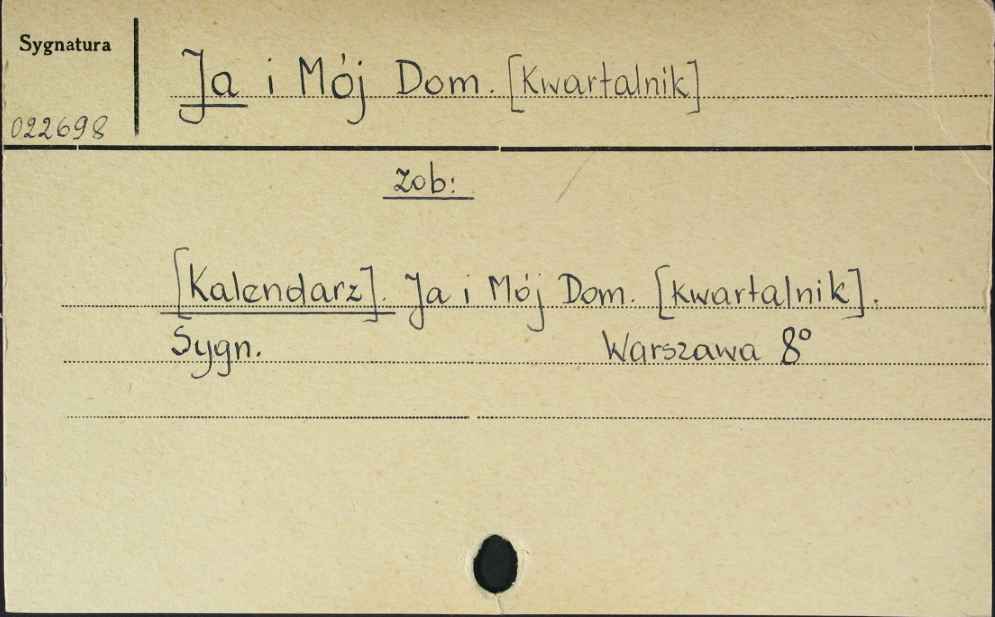 Sygnatura
Ja i Mój Dom. [Kwartalnik]
022698
Zob:
[Kalendarz]. Ja i Mój Dom. [Kwartalnik].
Sygn. Warszawa 8º